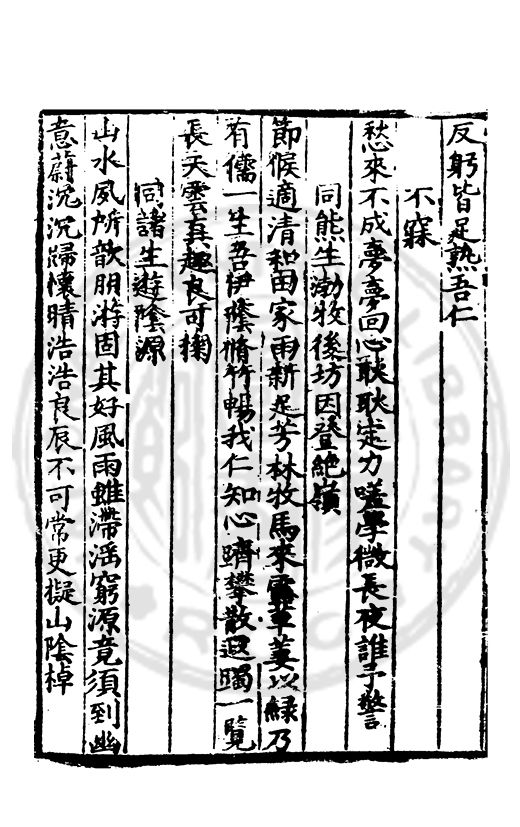 反躬皆足熟吾仁
不寐
愁來不成夢夢回心耿耿定力嗟學微長夜誰予警
同熊生渤牧後坊因登絶嶺
節候適清和田家雨新足芳林牧馬來靈草萋以緑乃
有儒一生吾伊蔭脩竹暢我仁知心躋攀散遐躅一覧
長天雲真趣良可掬
同諸生遊陰源
山水夙所歆朋游固其好風雨雖滯滛窮源竟須到幽
意蔚沉沉歸懷晴浩浩良辰不可常更擬山陰棹